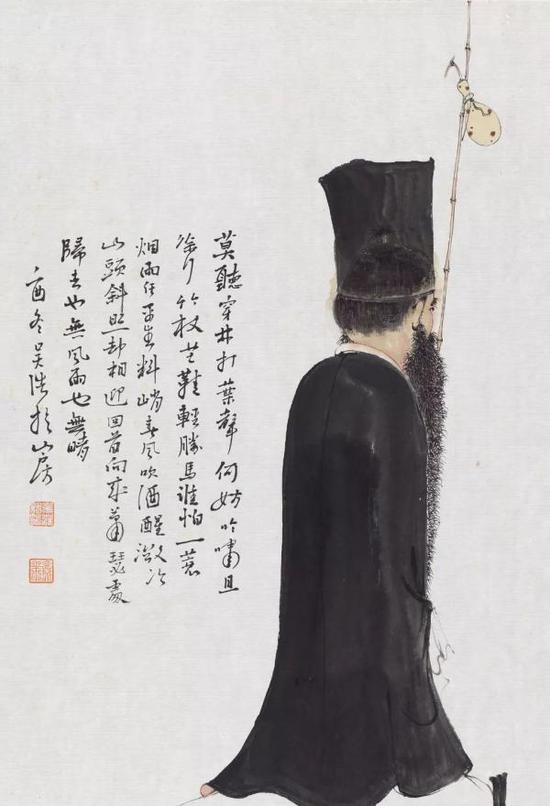 莫聽穿林打葉聲何妨吟嘯且
徐行竹杖芒鞋輕勝馬誰怕一蓑
烟雨任平生料峭春風吹酒醒微冷
山頭斜照却相迎回首向來蕭瑟處
歸去也無風雨也無晴
酉冬吴浩於山房